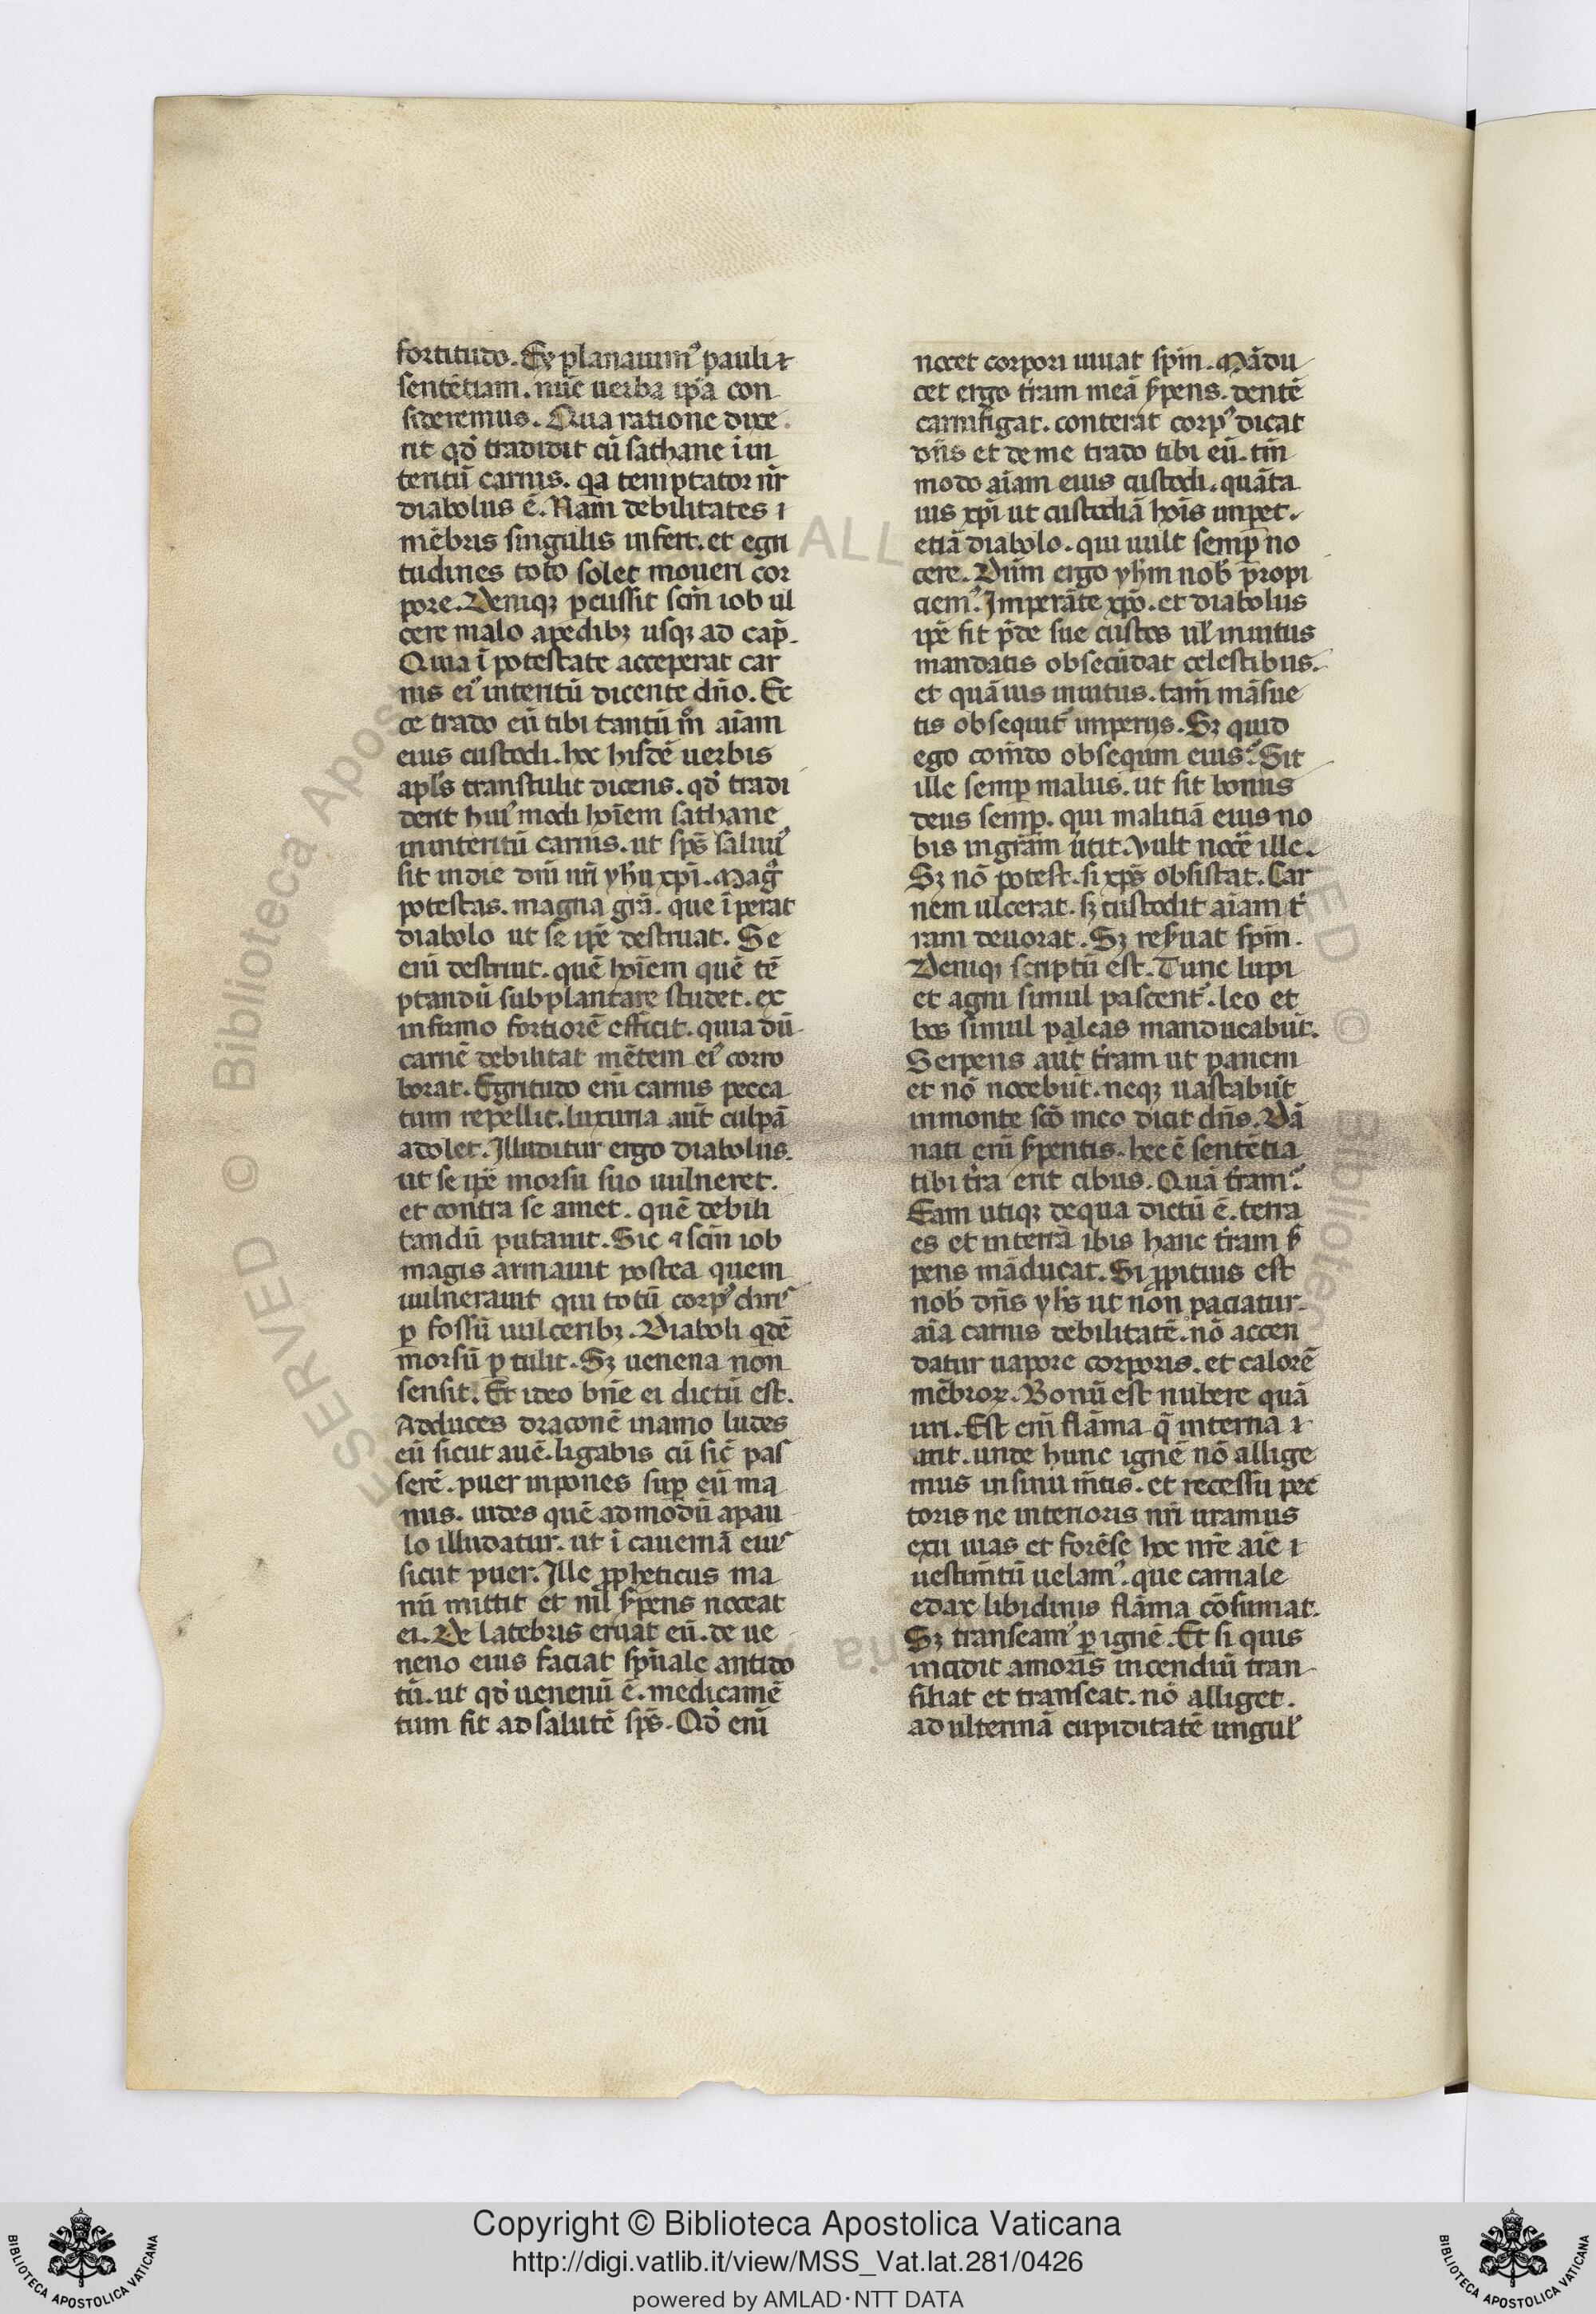 fortitudo. Explanauimꝰ pauli ⁊
sentētiam. nūc uerba ip̄a con
sideremus. Qua ratione dixe
rit qđ tradidit eū sathane ī in
teritū carnis. qa temptator nr̄
diabolus ē. Nam debilitates ı
mēbris singulis infert. et egri
tudines toto solet moueri cor
pore. Deniqꝫ ꝑcussit sc̄m iob ul
cere malo apedibꝫ usqꝫ ad cap̄.
Quia ī potestate acceperat car
nis eiꝰ interitū dicente dn̄o. Ec
ce trado eū tibi tantū m̊ aīam
eius custodi. hoc hisdē uerbis
apl̄s transtulit dicens. qđ tradi
derit huiꝰmodi hoīem sathane
ininteritū carnis. ut sp̄s saluuꝰ
sit indie dn̄i nr̄i yhu xp̄i. Mag̃
potestas. magna gr̄a. que īperat
diabolo ut se ip̄e destruat. Se
eni destruit. quē hoīem quē tē
ptandū subplantare studet. ex
infirmo fortiorē efficit. quia dū
carnē debilitat mētem eiꝰ corro
borat. Egritudo eni carnis pecca
tum repellit. luxuria aūt culpā
adolet. Illuditur ergo diabolus.
ut se ip̄e morsu suo uulneret.
et contra se armet. quē debili
tandū putauit. Sic ⁊ sc̄m iob
magis armauit postea quem
uulnerauit qui totū corpꝰ
ꝑfossū uulceribꝫ. Diaboli qdē
morsū ꝑtulit. Sꝫ uenena non
sensit. Et ideo bn̄e ei dictū est.
Adduces draconē inamo ludes
eū sicut auē. ligabis eū sic̄ pas
serē. puer inpones suꝑ eū ma
nus. uides quē admodū apau
lo illudatur. ut ī cauernā eius
sicut puer. Ille ꝓpheticus ma
nū mittit et nil s̄pens noceat
ei. De latebris eruat eū. de ue
neno eius faciat sp̄uale antido
tū. ut qđ uenenū ē. medicamē
tum fit ad salutē sp̄s. Qđ eni
nocet corpori iuuat sp̄m. Mādu
cet ergo t̄ram meā s̄pens. dentē
carni figat. conterat corpꝰ dicat
dn̄s et deme trado tibi eū. tm̄
modo aīam eius custodi. quāta
uis xp̄i ut custodiā hoīs inpet.
etiā diabolo. qui uult semꝑ no
cere. Dūm ergo yhm nob̄ propi
ciemꝰ. Imperāte xp̄o. et diabolus
ip̄e fit p̄de sue custos ul̄ inuitus
mandatis obsecūdat celestibus.
et quāuis inuitus. tam̄ māsue
tis obsequit̄ imperijs. Sꝫ quid
ego com̄do obsequium eius. Sit
ille semꝑ malus. ut sit bonus
deus semꝑ. qui malitiā eius no
bis ingr̄am utit̄. Vult nocē ille.
Sꝫ nō potest. si xp̄s obsistat. Car
nem ulcerat. sꝫ custodit aīam t̄
ram deuorat. Sꝫ res̄uat sp̄m.
Deniqꝫ scriptū est. Tunc lupi
et agni simul pascentꝰ. leo et
bos simul paleas manducabūt.
Serpens aūt t̄ram ut panem
et nō nocebūt. neqꝫ uastabūt
inmonte sc̄o meo dicit dn̄s. Dā
nati eni s̄pentis. hec ē sentētia
tibi t̄ra erit cibus. Quā t̄ram.
Eam utiqꝫ dequa dictū ē. terra
es et interrā ibis hanc t̄ram s̄
pens māducat. Si ꝓpitius est
nob̄ dn̄s yhs ut non paciatur.
aīa carnis debilitatē. nō accen
datur uapore corporis. et calorē
mēbroꝝ. Bonū est nubere quā
uri. Est eni flāma q̄ interna ı
urit. unde hunc ignē nō allige
mus insinu m̄tis. et recessu pec
toris ne interioris nr̄i uramus
exu uias et forēse hoc nr̄e aīe ı
uestim̄tū uelamꝰ. que carnale
edax libidinis flāma cōsumat.
Sꝫ transeamꝰ ꝑ ignē. Et si quis
incidit amoris incendiū tran
siliat et transeat. nō alliget.
adulterinā cupiditatē uinguł
Copyright © Biblioteca Apostolica Vaticana
http://digi.vatlib.it/view/MSS_Vat.lat.281/0426
powered by AMLAD·NTT DATA